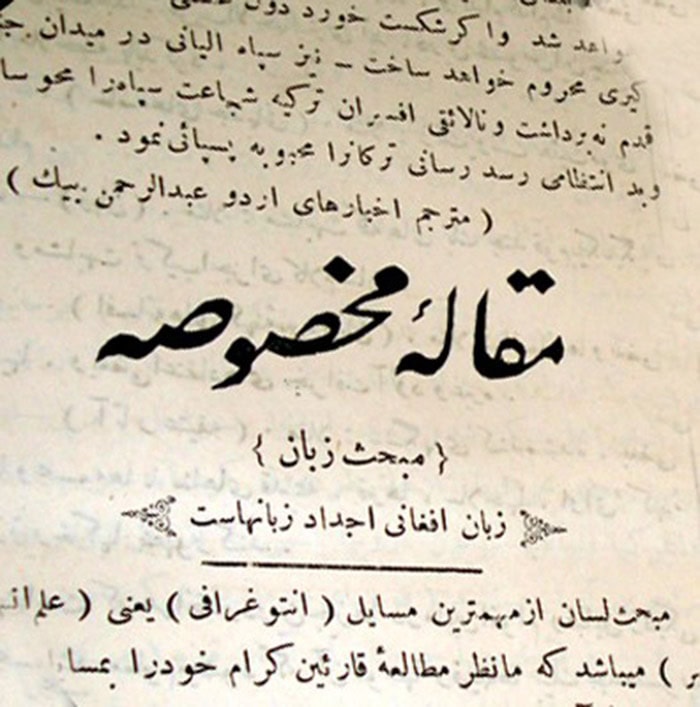 واهد شد واکر شکست خورد دول
کیری محروم خواهد ساخت ـ نیز سپاه البانی در میدان
قدم نه برداشت ونالائقی افسران ترکیه شجاعت سپاه را محو
وبد انتظامی رسد رسانی ترکانرا مجبوبه پسپائی نمود .
( مترجم اخبارهای اردو عبدالرحمن بیك )
مقالهٔ مخصوصه
{ مبحث زبان }
زبان افغانی اجداد زبانهاست
مبحث لسان از مهمترین مسایل ( انتو غرافی ) یعنی ( علم
) میباشد که مانظر مطالعهٔ قارئین کرام خودرا بمسا